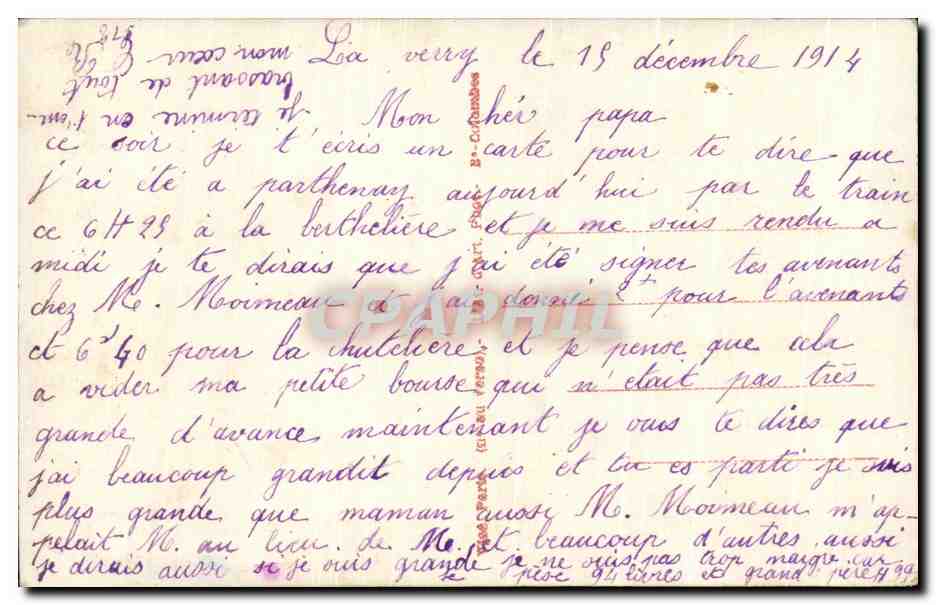 La verry le 15 décembre 1914
Mon chér papa
ce soir je t'écris un carte pour te dire que
j'ai été a parthenay aujourd'hui par le train
ce 6H25 à la berthelière et je me suis rendu a
midi je te dirais que j'ai été signer tes avenants
chez M. Moimeau et j'ai donné pour l'avenants
et 6f40 pour la chutelière et je pense que cela
a vider ma petite bourse qui n'était pas très
grande d'avance maintenant je vais te dires que
j'ai beaucoup grandit depuis et tu es parti je suis
plus grande que maman aussi M. Moimeau m'ap-
pelait M. au lieu de M. et beaucoup d'autres aussi
je dirais aussi si je suis grande je ne suis pas trop maigre car
je pèse 94 livres et grand père 99
je termine en t'em-
brassant de tout
mon cœur
CPAPHIL